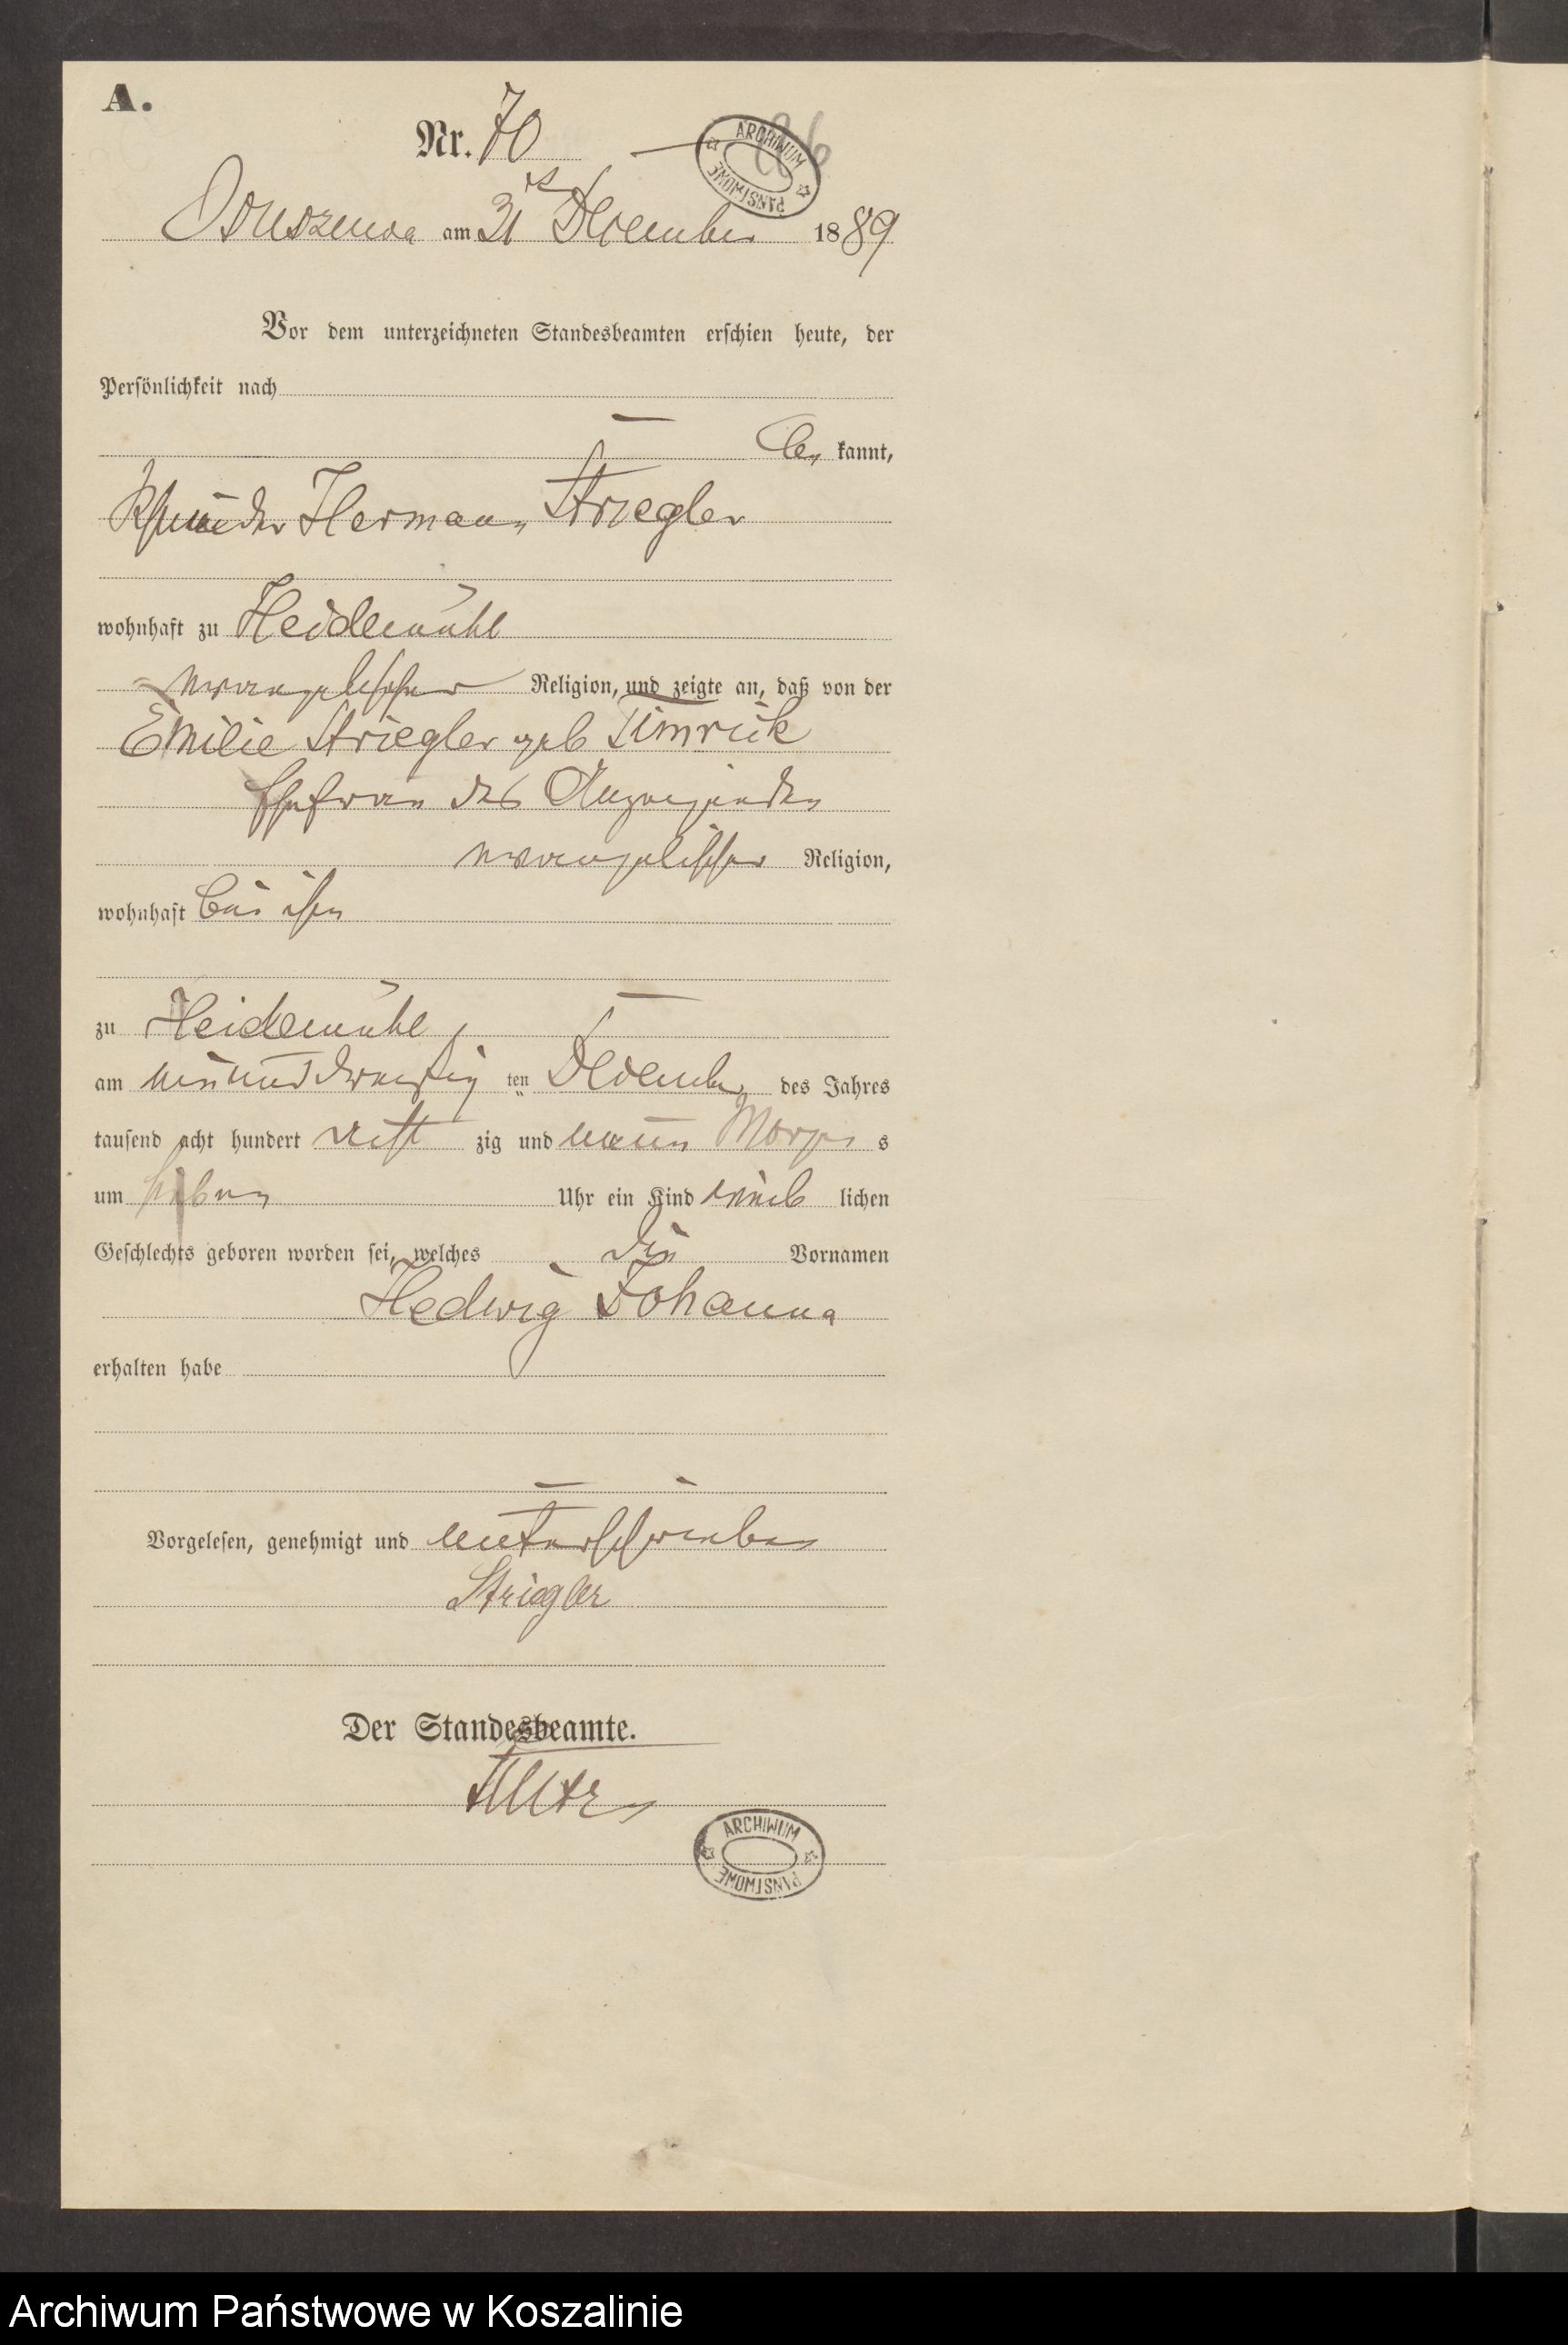 A.
Nr. 70
ARCHIWUM PAŃSTWOWE
Ossuszenica am 31ts Dezember 1889
Vor dem unterzeichneten Standesbeamten erschien heute, der
Persönlichkeit nach
be kannt,
Hermann Striegler
wohnhaft zu Heidemühl
evangelischer Religion, und zeigte an, daß von der
Emilie Striegler geb Timreck
Ehefrau des Anzeigenden
evangelischer Religion,
wohnhaft bei ihm
zu Heidemühl,
am neunundzwanzig ten Dezember des Jahres
tausend acht hundert acht zig und neun Morgens
um sieben Uhr ein Kind weib lichen
Geschlechts geboren worden sei, welches die Vornamen
Hedwig Johanna
erhalten habe
Vorgelesen, genehmigt und unterschrieben
Striegler
Der Standesbeamte.
ARCHIWUM PAŃSTWOWE
Archiwum Państwowe w Koszalinie